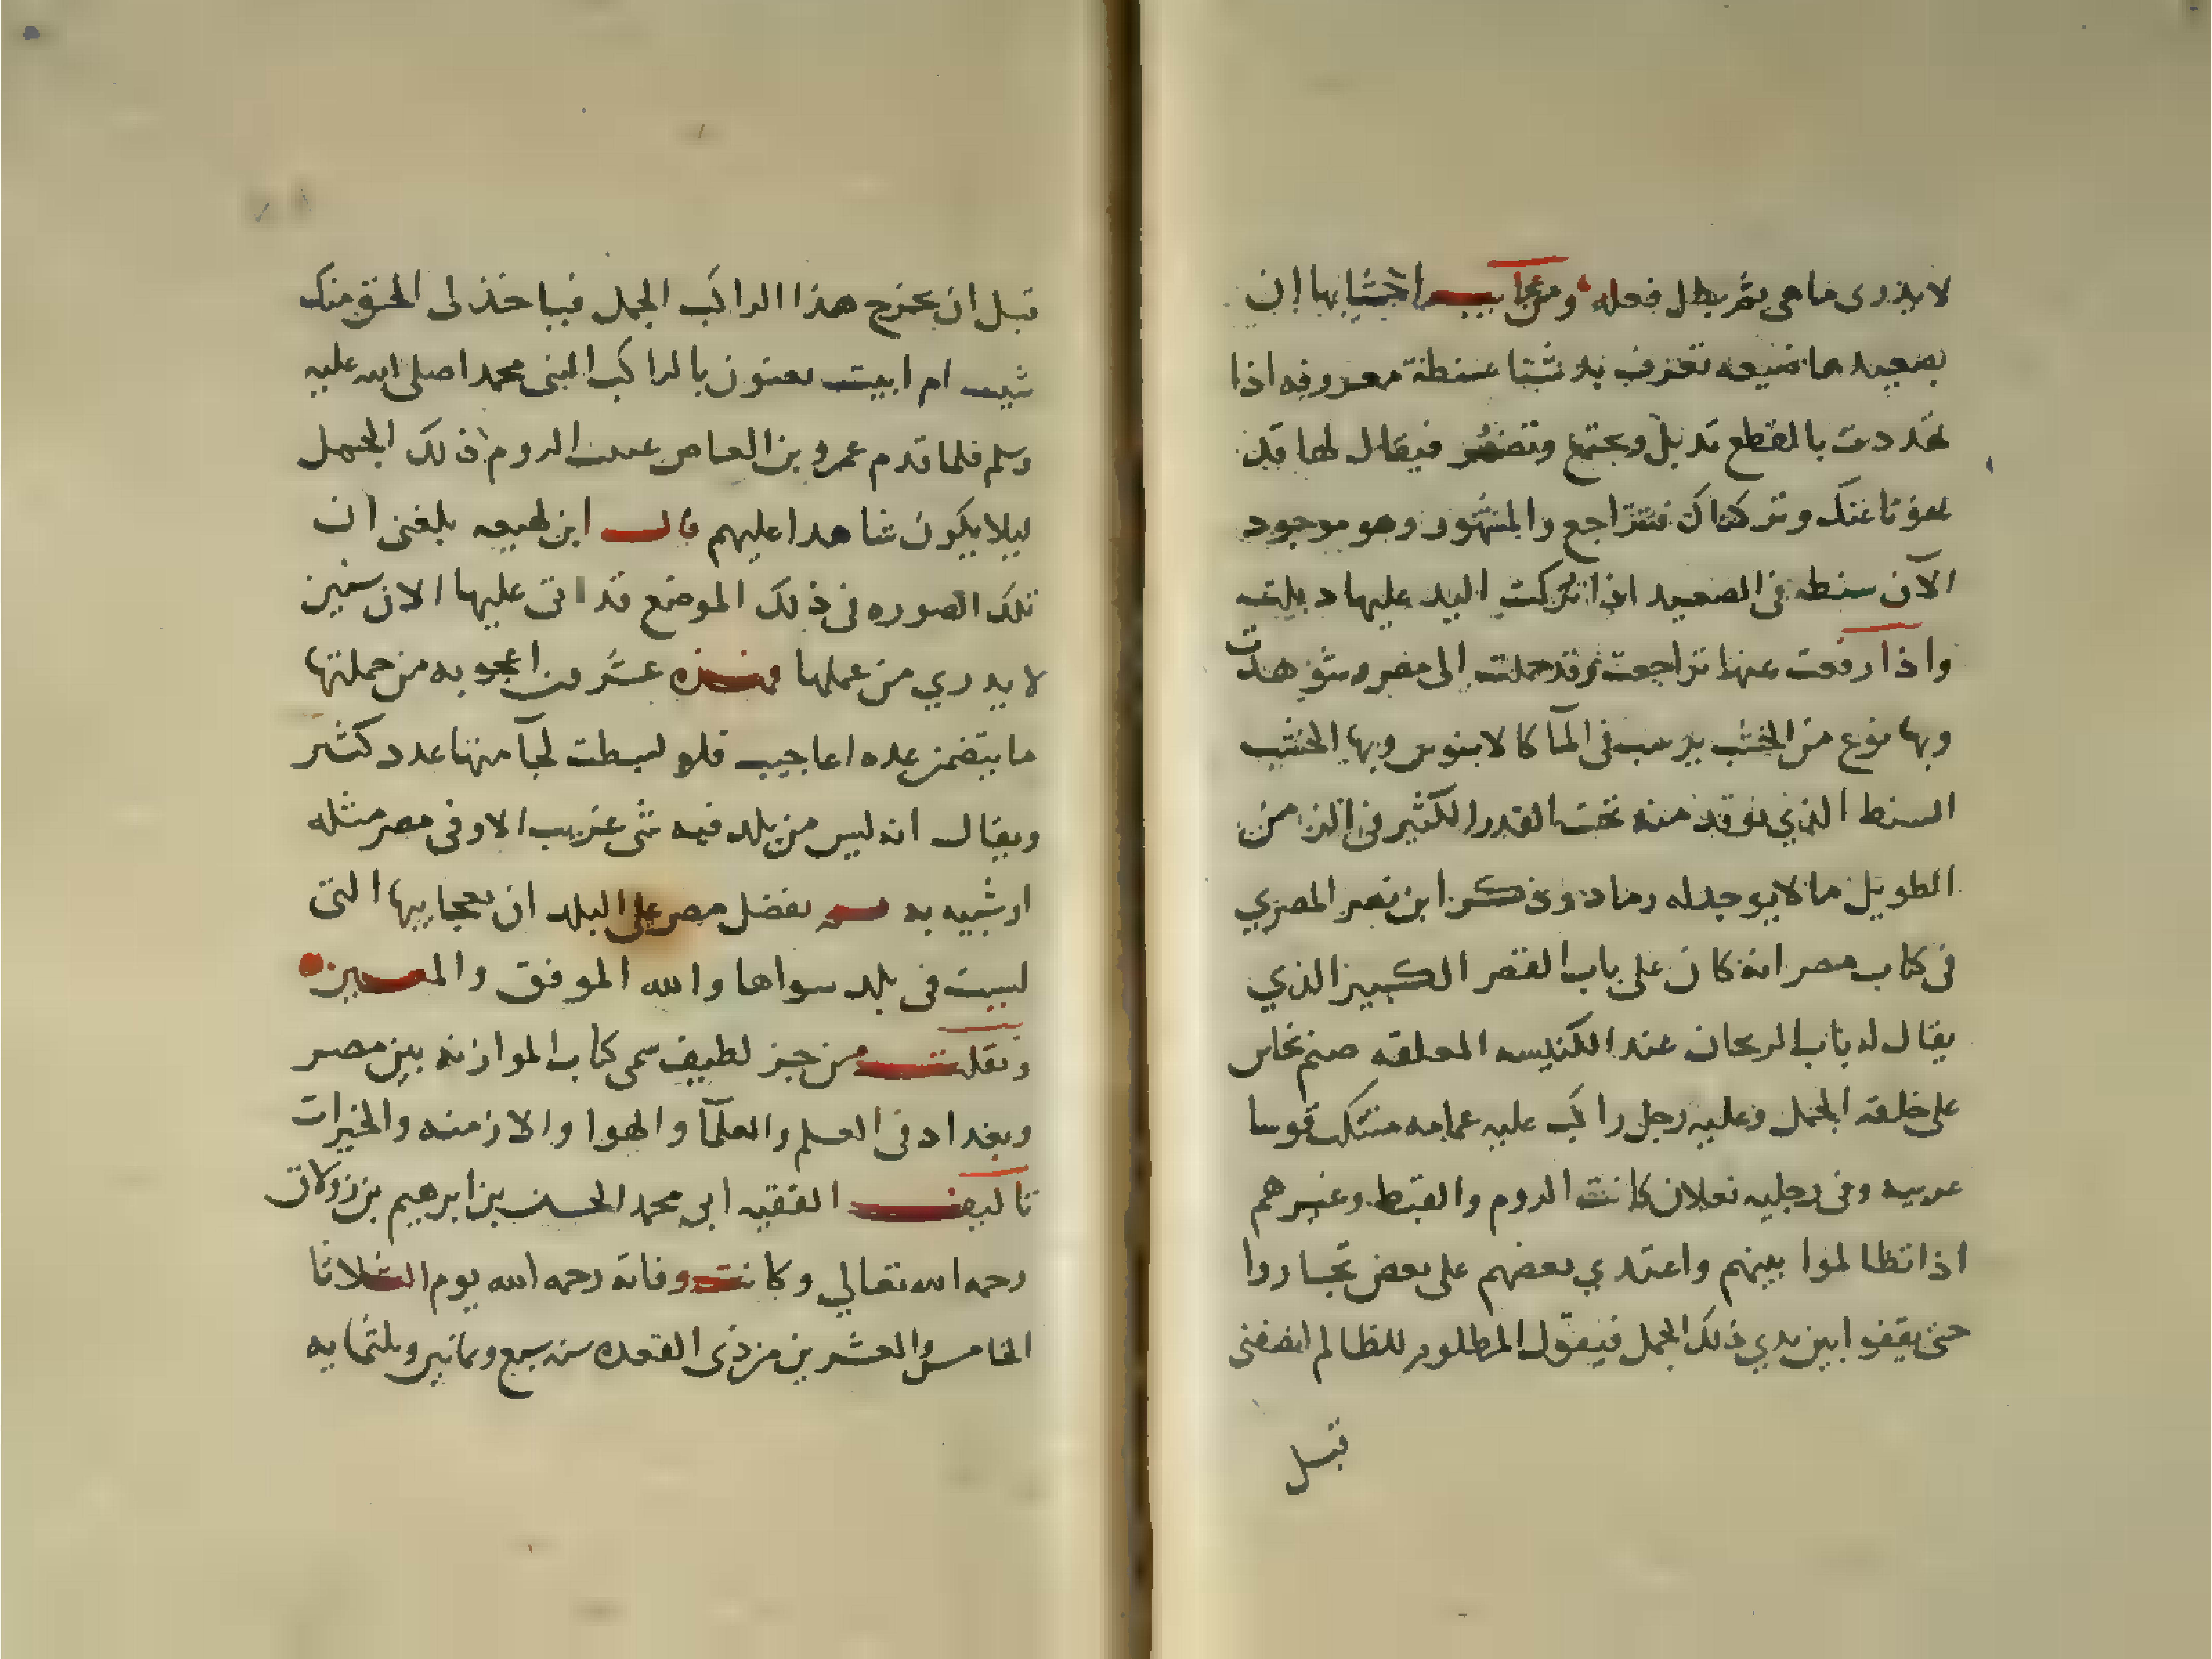 لا يدرى ما هى ثم بطل فعله ومن عجايب اخشابها ان
بصعيدها ضيعه تعرف بدشنا سنطة معروفه اذا
هددت بالقطع تدبل وتجتمع وتضمر فيقال لها قد
عفونا عنك وتركناك فتتراجع والمشهور وهو موجود
الآن سنطه فى الصعيد اذا تركت اليد عليها دبلت
واذا رفعت عنها تراجعت وقد حملت الى مصر وشوهدت
وبها نوع من الخشب يرسب فى المآ كالابنوس وبها الخشب
السنط الذي يوقد منه تحت القدر الكثير فى الزمن
الطويل ما لا يوجد له رماد وذكر ابن نصر المصري
فى كتاب مصر انه كان على باب القصر الكبير الذي
يقال له باب الريحان عند الكنيسه المعلقه صنم نحاس
على خلقه الجمل وعليه رجل راكب عليه عمامه متنكب قوسا
عربيه وفى رجليه نعلان كانت الروم والقبط وغيرهم
اذا تظالموا بينهم واعتدي بعضهم على بعض تجاروا
حتى يقفوا بين يدي ذلك الجمل فيقول المظلوم للظالم انصفنى
قبل
قبل ان يخرج هذا الراكب الجمل فياخذ لى الحق منك
شيت ام ابيت يعنون بالراكب النبى محمدا صلى الله عليه
وسلم فلما قدم عمرو بن العاص غيبت الروم ذلك الجمل
ليلا يكون شاهدا عليهم قال ابن لهيعه بلغنى ان
تلك الصوره فى ذلك الموضع قد اتى عليها الان سنين
لا يدري من عملها فهذه عشرون اعجوبه من جملتها
ما يتضمن عده اعاجيب فلو بسطت لجآ منها عدد كثير
ويقال انه ليس من بلد فيه شى غريب الا وفى مصر مثله
او شبيه به ثم تفضل مصر على البلد ان بعجايبها التى
ليست فى بلد سواها والله الموفق والمعين
ونقلت من جز لطيف سمى كتاب الموازنه بين مصر
وبغداد فى العلم والعلمآ والهوا والازمنه والخيرات
تاليف الفقيه ابى محمد الحسن بن ابرهيم بن زولاق
رحمه الله تعالي وكانت وفاته رحمه الله يوم الثلاثا
الخامس والعشرين من ذى القعده سنه سبع وثمانين وثلثمايه